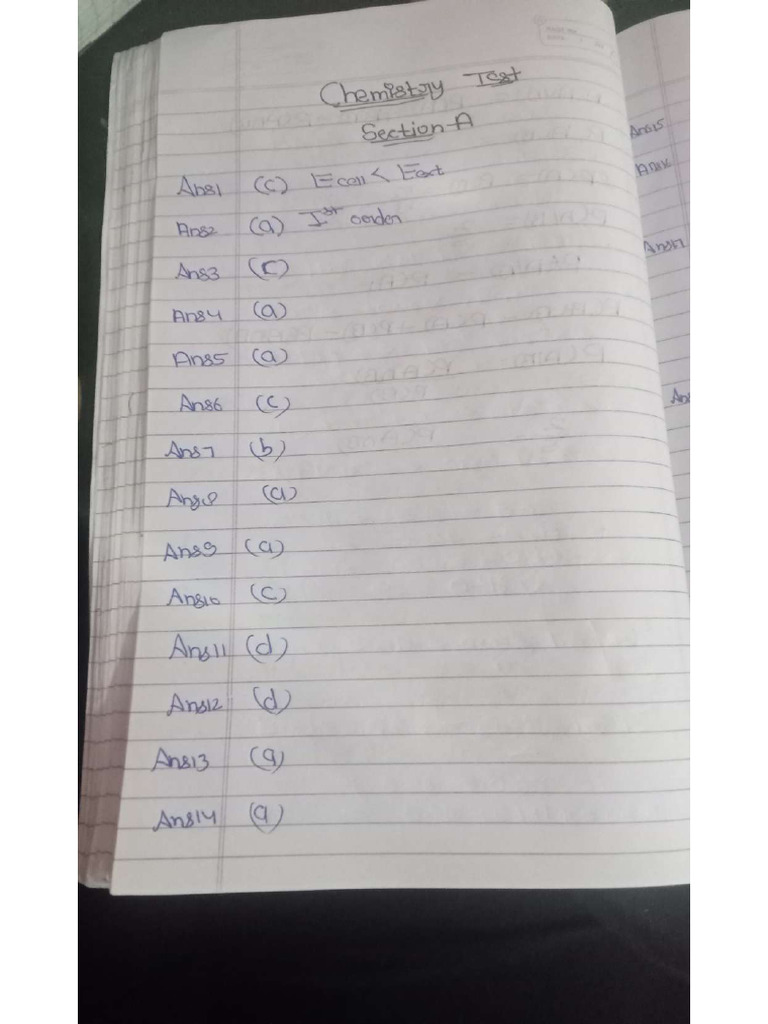 Chemistry Test
Section-A
Ans1 (c) Ecell < Eext
Ans2 (a) Ist order
Ans3 (c)
Ans4 (a)
Ans5 (a)
Ans6 (c)
Ans7 (b)
Ans8 (a)
Ans9 (a)
Ans10 (c)
Ans11 (d)
Ans12 (d)
Ans13 (a)
Ans14 (a)
Ans15
Ans16
Ans17